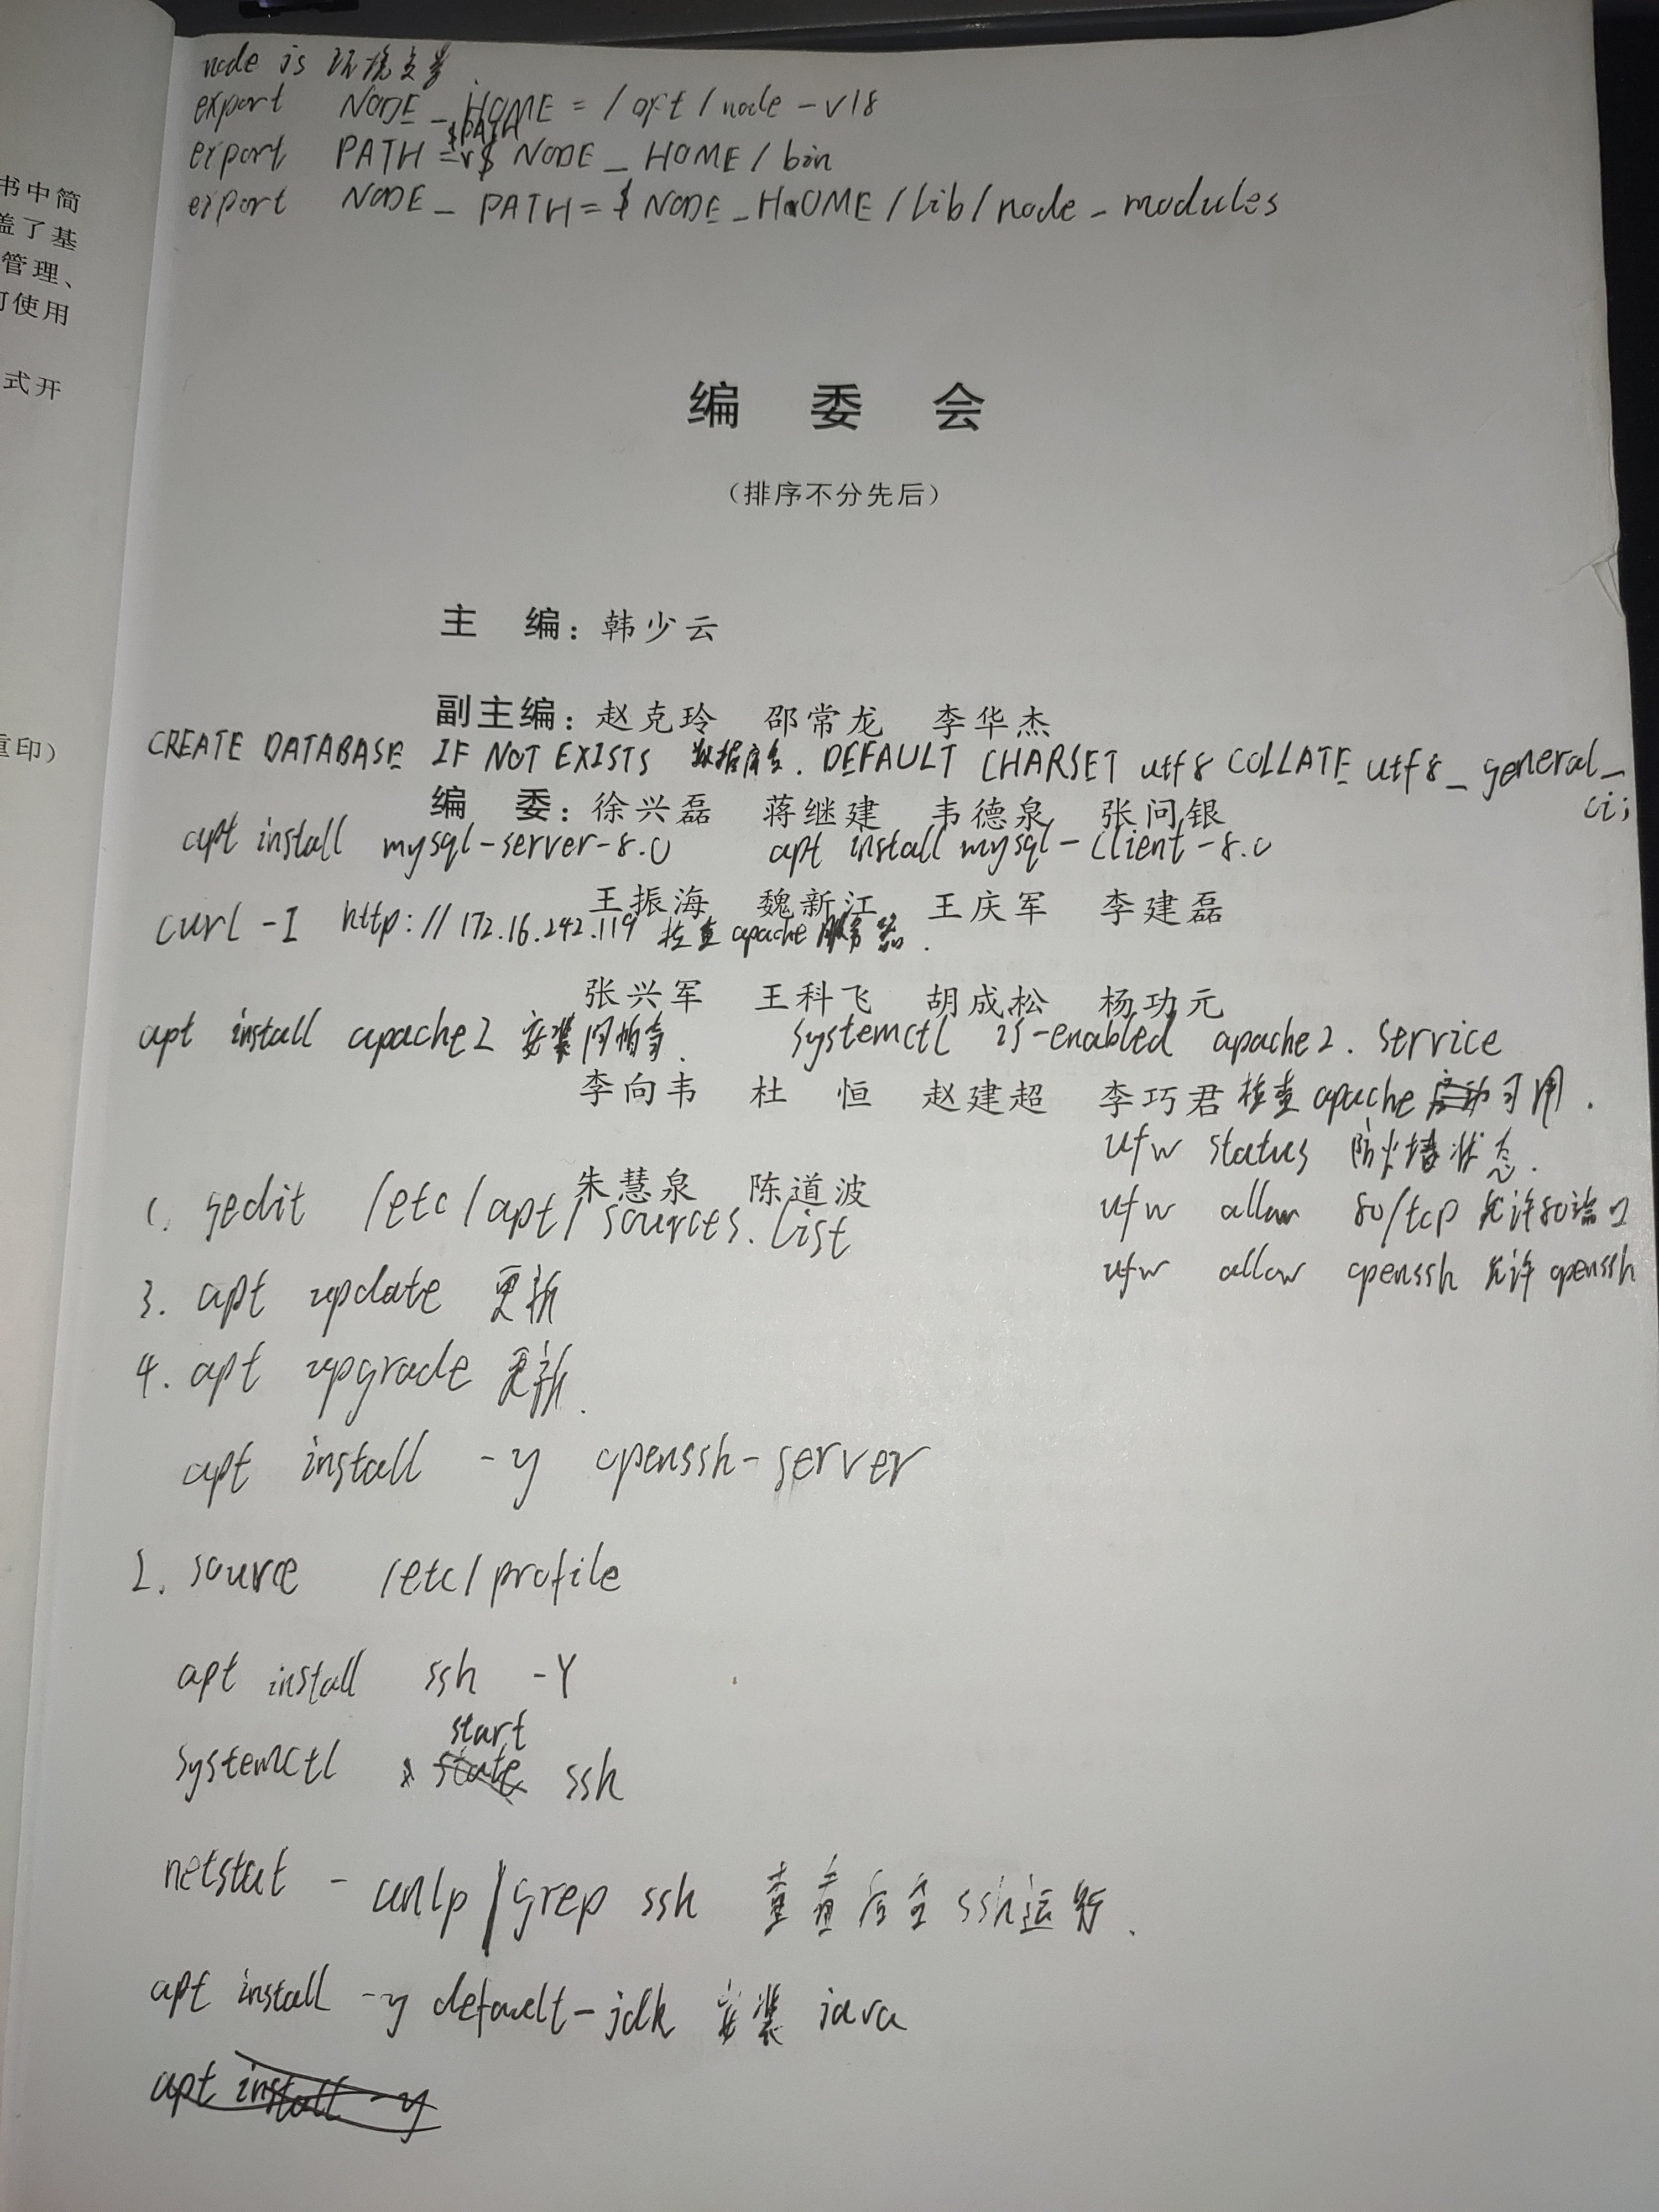 书中简
盖了基
管理、
可使用
式开
重印）
node js 环境变量
export NODE_HOME = /opt/node-v18
$PATH
export PATH = $ NODE_HOME/bin
export NODE_PATH = $ NODE_HOME/lib/node_modules
编 委 会
（排序不分先后）
主 编：韩少云
副主编：赵克玲 邵常龙 李华杰
CREATE DATABASE IF NOT EXISTS 数据库名. DEFAULT CHARSET utf8 COLLATE utf8_general_
ci;
编 委：徐兴磊 蒋继建 韦德泉 张问银
apt install mysql-server-8.0 apt install mysql-client-8.0
王振海 魏新江 王庆军 李建磊
curl -I http://172.16.242.119 检查apache服务器.
张兴军 王科飞 胡成松 杨功元
apt install apache2 安装阿帕奇. systemctl is-enabled apache2.service
李向韦 杜 恒 赵建超 李巧君 检查apache启动可用.
ufw status 防火墙状态.
朱慧泉 陈道波
1. gedit /etc/apt/sources.list
ufw allow 80/tcp 允许80端口
ufw allow openssh 允许openssh
3. apt update 更新
4. apt upgrade 更新.
apt install -y openssh-server
2. source /etc/profile
apt install ssh -Y
start
systemctl state ssh
netstat - anlp | grep ssh 查看后台ssh运行.
apt install -y default-jdk 安装 java
apt install -y